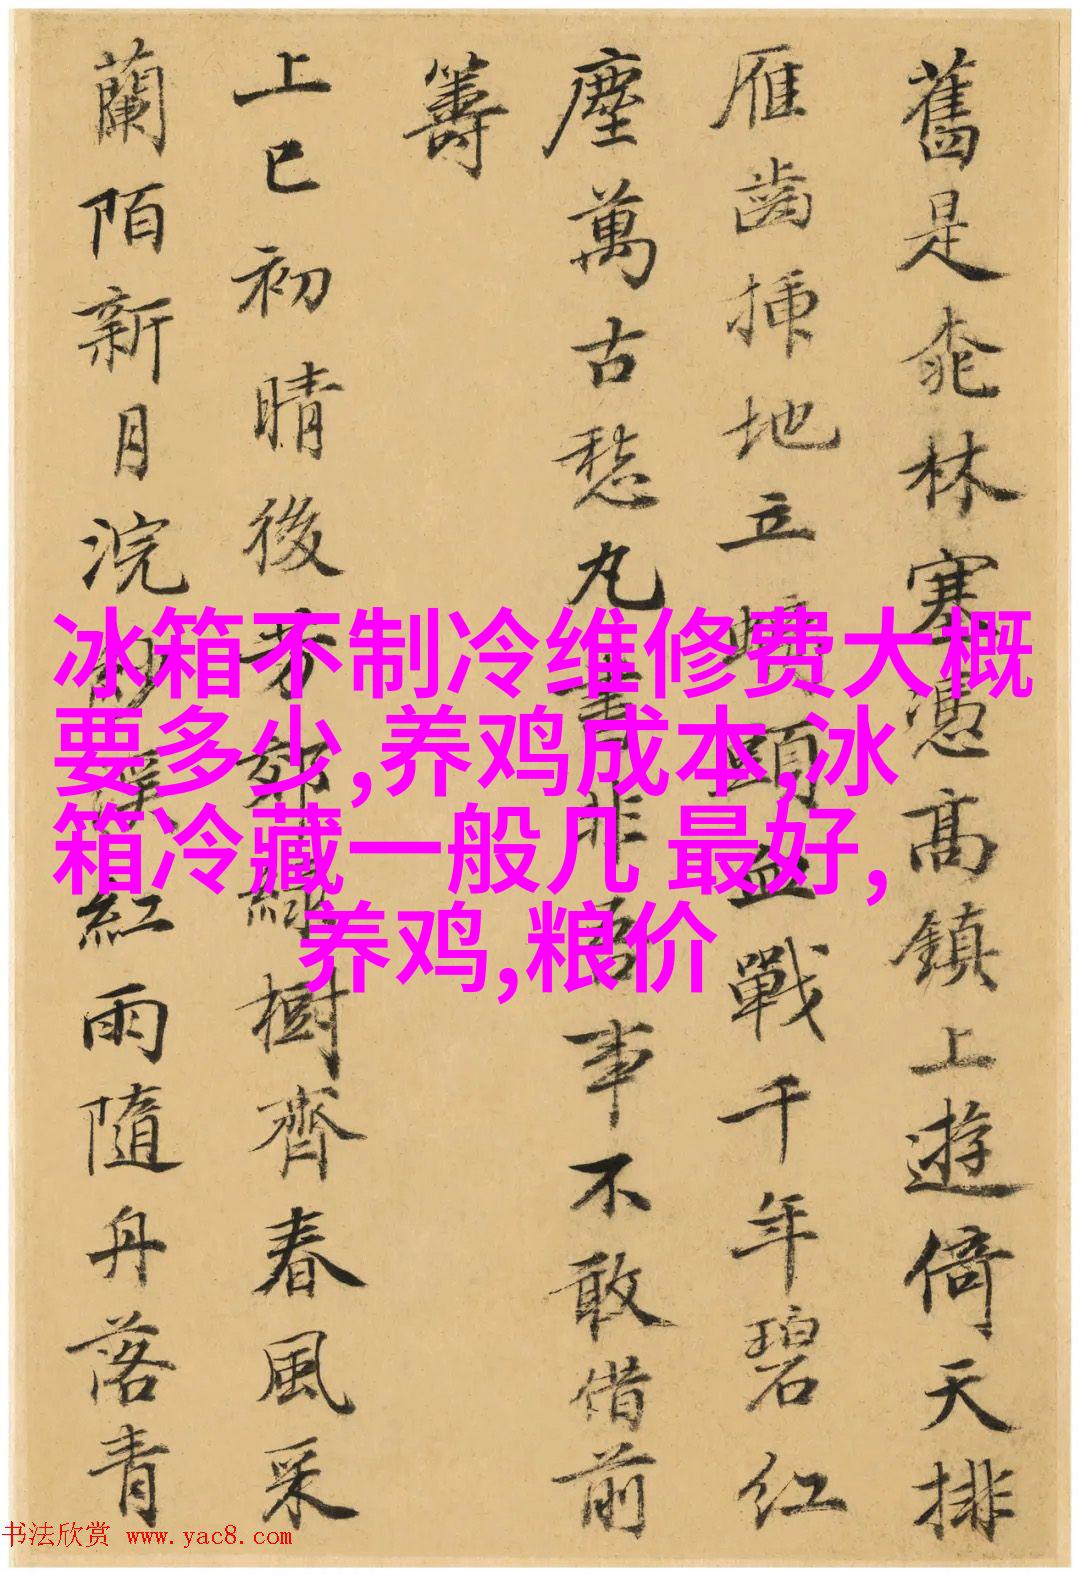 舊是桃林塞憑高鎮上遊倚天排
雁齒插地立頭血戰千年碧紅
塵萬古愁丸書非吾事不敢借前
籌
上巳初晴後芳郊綠樹齊春風采
蘭陌新月浣溪紅雨隨舟落青
冰箱不制冷维修费大概
要多少,养鸡成本,冰
箱冷藏一般几 最好,
养鸡,粮价
书法欣赏 www.yac8.com